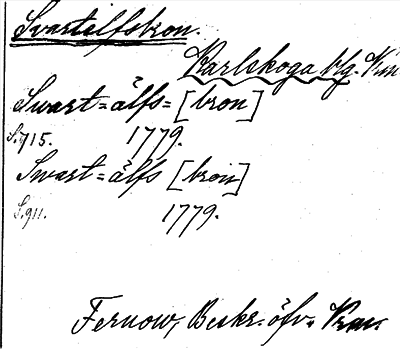 Svartälfsbron.
Karlskoga blg. Vrm
Swart=älfs=[bron]
S.715. 1779.
Swart=älfs [bron]
S.911. 1779.
Fernow, Beskr. öfv. Vrm